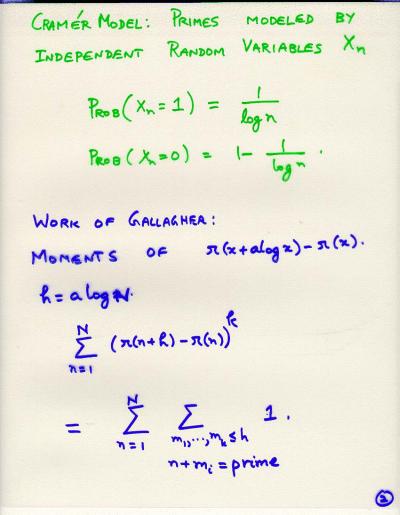 CRAMÉR MODEL: PRIMES MODELED BY
INDEPENDENT RANDOM VARIABLES Xn
PROB(Xn = 1) = 1/log n
PROB(Xn = 0) = 1 - 1/log n.
WORK OF GALLAGHER:
MOMENTS OF π(x+alogx) - π(x).
h = a log N.
N Σ n=1 (π(n+h) - π(n))^k
= N Σ n=1 Σ m1,...,mk ≤ h n+mi = prime 1.
2